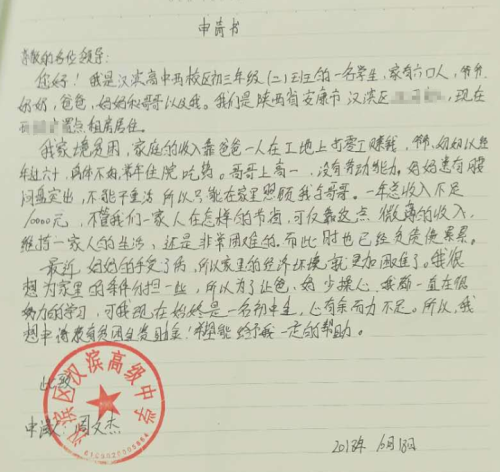 申请书
尊敬的各位领导:
您好!我是汉滨高中西校区初三年级(二)班的一名学生,家有六口人,爷爷
奶奶,爸爸,妈妈和哥哥以及我。我们是陕西省安康市汉滨区 现在
置点租房居住。
我家境贫困,家庭的收入靠爸爸一人在工地上打零工赚钱,爷、奶奶以经
年过六十,身体不好,常年住院吃药。哥哥上高一,没有劳动能力。妈妈患有腰
间盘突出,不能干重活所以只能在家里照顾我与哥哥。一年总收入不足
10000元,不管我们一家人在怎样的节省,可仅靠这点微薄的收入,
维持一家人的生活,还是非常困难的。而此时也已经负债使累累。
最近妈妈的手受了伤,所以家里的经济环境就更加困难了。我很
想为家里的条件分担一些,所以为了让爸、妈少操心,我都一直在很
努力的学习,可我现在始终是一名初中生,心有余而力不足。所以,我
想申请教育贫困生资助金!希望能给予我一定的帮助。
此致
申请人:周文杰
汉滨区汉滨高级中学
2018年 10月18日